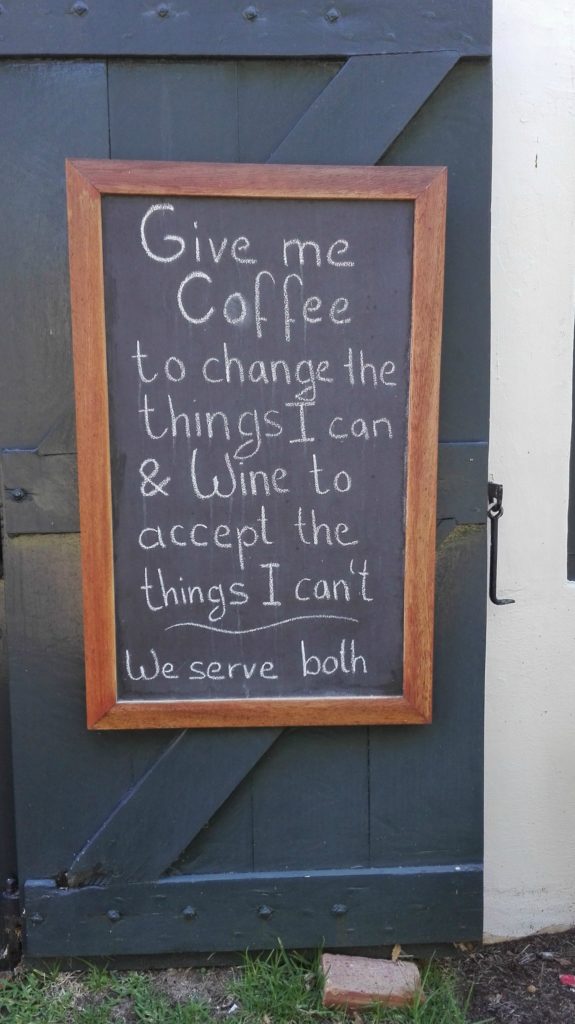 Give me
Coffee
to change the
things I can
& Wine to
accept the
things I can't
We serve both